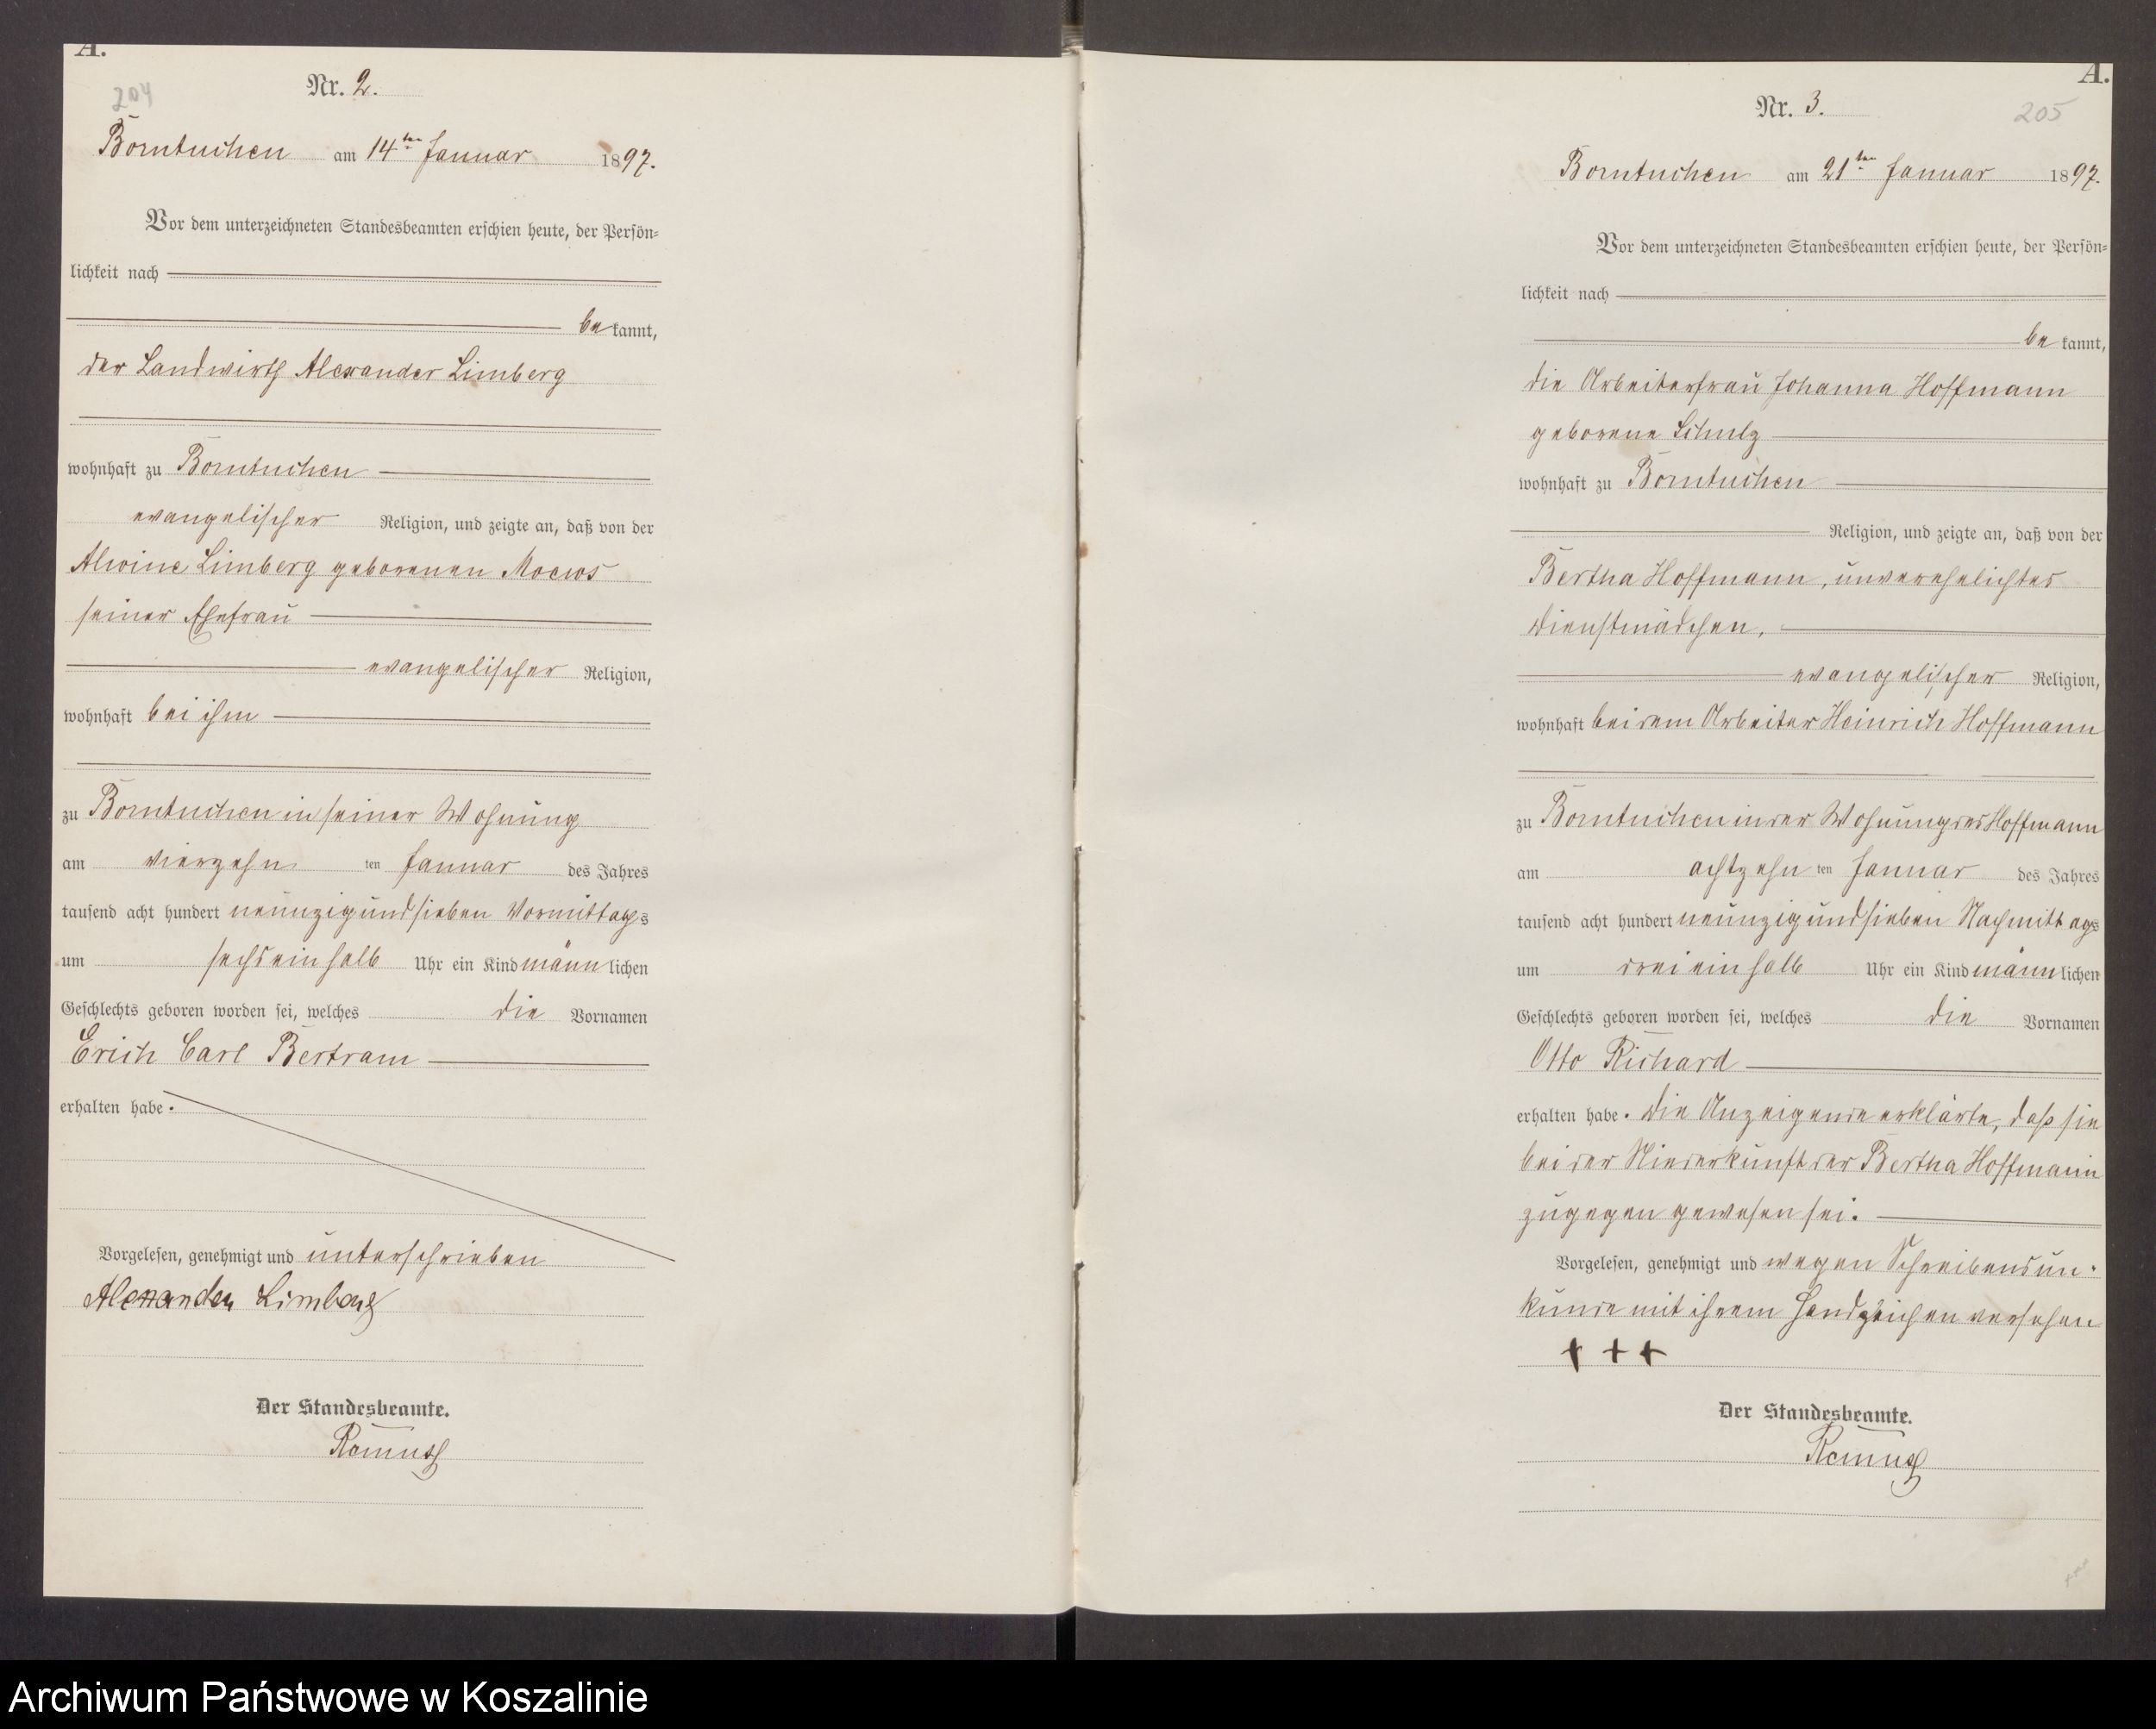 A.
204
Nr. 2.
Borntuchen am 14ten Januar 1897.
Vor dem unterzeichneten Standesbeamten erschien heute, der Persön-
lichkeit nach
bekannt,
der Landwirth Alexander Limberg
wohnhaft zu Borntuchen
evangelischer Religion, und zeigte an, daß von der
Alwine Limberg geborenen Moews
seiner Ehefrau
evangelischer Religion,
wohnhaft bei ihm
zu Borntuchen in seiner Wohnung
am vierzehnten Januar des Jahres
tausend acht hundert neunzig und sieben Vormittags
um sechs ein halb Uhr ein Kind männlichen
Geschlechts geboren worden sei, welches die Vornamen
Erich Carl Bertram
erhalten habe.
Vorgelesen, genehmigt und unterschrieben
Alexander Limberg
Der Standesbeamte.
A.
205
Nr. 3.
Borntuchen am 21ten Januar 1897.
Vor dem unterzeichneten Standesbeamten erschien heute, der Persön-
lichkeit nach
bekannt,
die Arbeiterfrau Johanna Hoffmann
geborene Schulz
wohnhaft zu Borntuchen
Religion, und zeigte an, daß von der
Bertha Hoffmann, unverehelichtes
Dienstmädchen,
evangelischer Religion,
wohnhaft bei dem Arbeiter Heinrich Hoffmann
zu Borntuchen in der Wohnung des Hoffmann
am achtzehnten Januar des Jahres
tausend acht hundert neunzig und sieben Nachmittags
um drei ein halb Uhr ein Kind männlichen
Geschlechts geboren worden sei, welches die Vornamen
Otto Richard
erhalten habe. Die Anzeigende erklärte, daß sie
bei der Niederkunft der Bertha Hoffmann
zugegen gewesen sei.
Vorgelesen, genehmigt und wegen Schreibensun-
kunde mit ihrem Handzeichen versehen
+ + +
Der Standesbeamte.
Archiwum Państwowe w Koszalinie